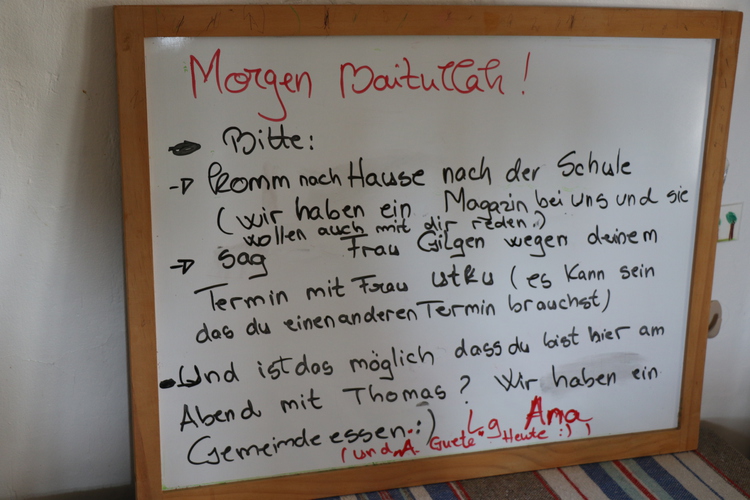 Morgen Baitullah!
Bitte:
→ Komm nach Hause nach der Schule
(wir haben ein Magazin bei uns und sie
wollen auch mit dir reden :)
→ Sag Frau Gilgen wegen deinem
Termin mit Frau Utku (es kann sein
das du einen anderen Termin brauchst)
Und ist das möglich dass du bist hier am
Abend mit Thomas? Wir haben ein
Gemeindeessen :) Lg Ana
(und A. Guete Heute :))